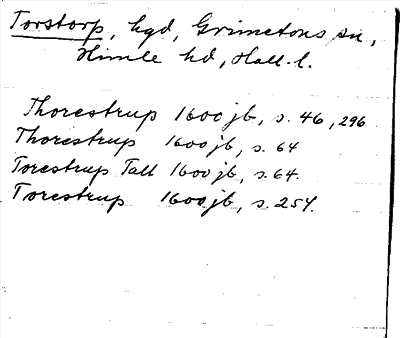 Torstorp, hgd, Grimetons sn,
Himle hd, Hall. l.
Thorestrup 1600 jb, s. 46, 296
Thorestrup 1600 jb, s. 64
Torestrup Tall 1600 jb, s. 64.
Torestrup 1600 jb, s. 254.